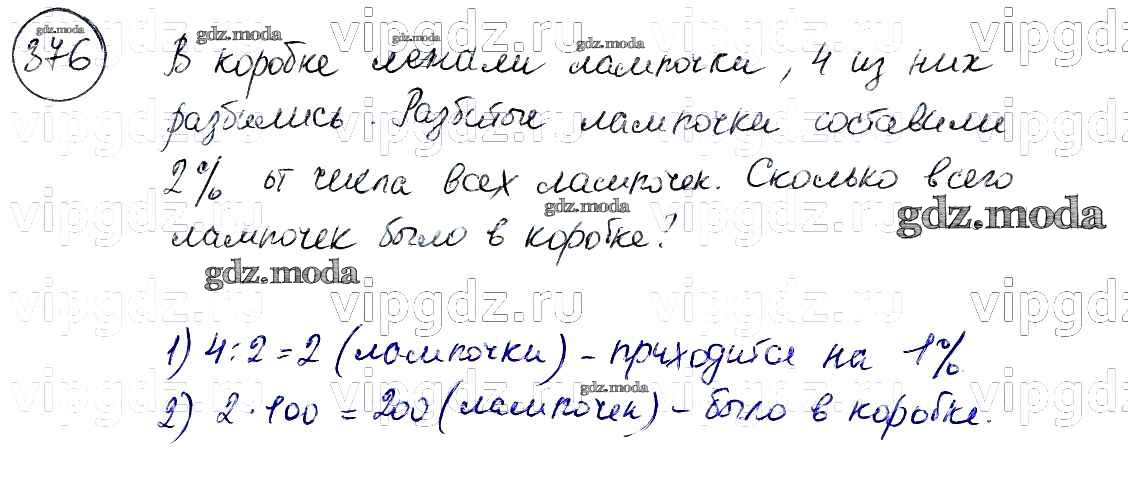 376
В коробке лежали лампочки, 4 из них
разбились. Разбитые лампочки составили
2% от числа всех лампочек. Сколько всего
лампочек было в коробке?
1) 4:2=2 (лампочки) - приходится на 1%
2) 2·100 = 200 (лампочек) - было в коробке.
gdz.moda
gdz.moda
gdz.moda
gdz.moda
gdz.moda
gdz.moda
gdz.moda
gdz.moda
vipgdz.ru
vipgdz.ru
vipgdz.ru
vipgdz.ru